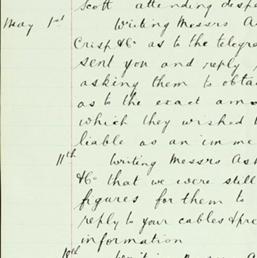 Scott attending
May 1st Writing Messrs
Crisp & Co as to the
sent you and reply
asking them to
as to the exact
which they wished
liable as an
11th Writing Messrs
& Co that we were still
figures for them to
reply to your cables &
information